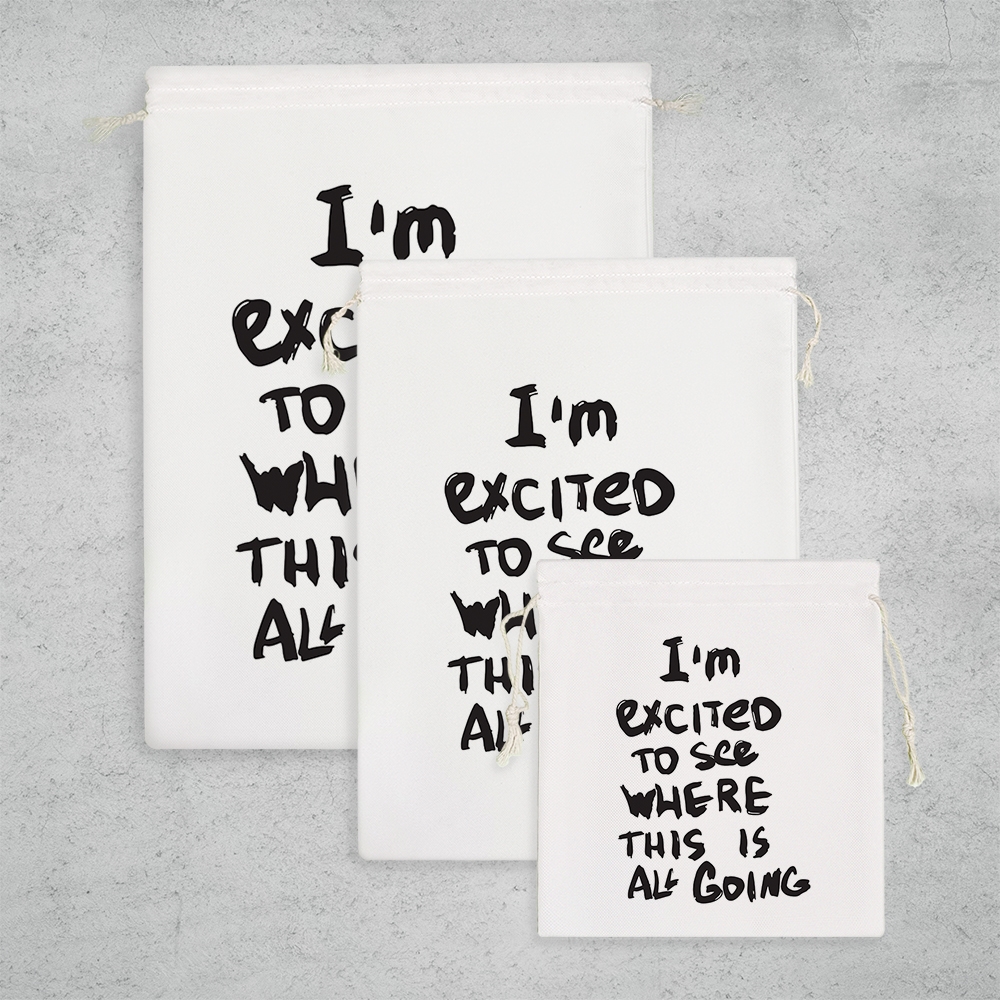 I'm
exc
TO
WH
THIS
ALL
I'm
excited
TO see
WH
THI
ALL
I'm
excited
TO see
WHERE
THIS IS
ALL GOING